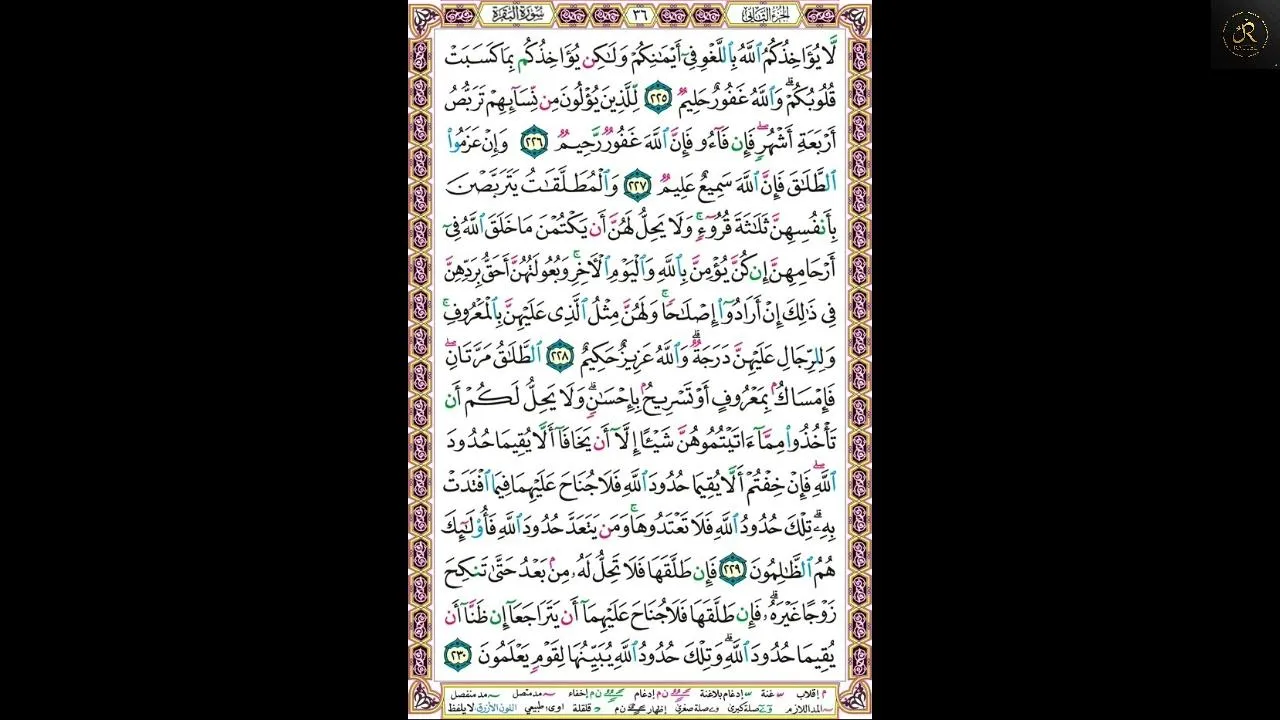 الجزء الثاني
٣٦
سورة البقرة
لَّا يُؤَاخِذُكُمُ ٱللَّهُ بِٱللَّغْوِ فِىٓ أَيْمَٰنِكُمْ وَلَٰكِن يُؤَاخِذُكُم بِمَا كَسَبَتْ
قُلُوبُكُمْ ۗ وَٱللَّهُ غَفُورٌ حَلِيمٌ ٢٢٥ لِّلَّذِينَ يُؤْلُونَ مِن نِّسَآئِهِمْ تَرَبُّصُ
أَرْبَعَةِ أَشْهُرٍ ۖ فَإِن فَآءُو فَإِنَّ ٱللَّهَ غَفُورٌ رَّحِيمٌ ٢٢٦ وَإِنْ عَزَمُوا۟
ٱلطَّلَٰقَ فَإِنَّ ٱللَّهَ سَمِيعٌ عَلِيمٌ ٢٢٧ وَٱلْمُطَلَّقَٰتُ يَتَرَبَّصْنَ
بِأَنفُسِهِنَّ ثَلَٰثَةَ قُرُوٓءٍ ۚ وَلَا يَحِلُّ لَهُنَّ أَن يَكْتُمْنَ مَا خَلَقَ ٱللَّهُ فِىٓ
أَرْحَامِهِنَّ إِن كُنَّ يُؤْمِنَّ بِٱللَّهِ وَٱلْيَوْمِ ٱلْءَاخِرِ ۚ وَبُعُولَتُهُنَّ أَحَقُّ بِرَدِّهِنَّ
فِى ذَٰلِكَ إِنْ أَرَادُوٓا۟ إِصْلَٰحًا ۚ وَلَهُنَّ مِثْلُ ٱلَّذِى عَلَيْهِنَّ بِٱلْمَعْرُوفِ ۚ
وَلِلرِّجَالِ عَلَيْهِنَّ دَرَجَةٌ ۗ وَٱللَّهُ عَزِيزٌ حَكِيمٌ ٢٢٨ ٱلطَّلَٰقُ مَرَّتَانِ ۖ
فَإِمْسَاكٌۢ بِمَعْرُوفٍ أَوْ تَسْرِيحٌۢ بِإِحْسَٰنٍ ۗ وَلَا يَحِلُّ لَكُمْ أَن
تَأْخُذُوا۟ مِمَّآ ءَاتَيْتُمُوهُنَّ شَيْـًٔا إِلَّآ أَن يَخَافَآ أَلَّا يُقِيمَا حُدُودَ
ٱللَّهِ ۖ فَإِنْ خِفْتُمْ أَلَّا يُقِيمَا حُدُودَ ٱللَّهِ فَلَا جُنَاحَ عَلَيْهِمَا فِيمَا ٱفْتَدَتْ
بِهِۦ ۗ تِلْكَ حُدُودُ ٱللَّهِ فَلَا تَعْتَدُوهَا ۚ وَمَن يَتَعَدَّ حُدُودَ ٱللَّهِ فَأُو۟لَٰٓئِكَ
هُمُ ٱلظَّٰلِمُونَ ٢٢٩ فَإِن طَلَّقَهَا فَلَا تَحِلُّ لَهُۥ مِنۢ بَعْدُ حَتَّىٰ تَنكِحَ
زَوْجًا غَيْرَهُۥ ۗ فَإِن طَلَّقَهَا فَلَا جُنَاحَ عَلَيْهِمَآ أَن يَتَرَاجَعَآ إِن ظَنَّآ أَن
يُقِيمَا حُدُودَ ٱللَّهِ ۗ وَتِلْكَ حُدُودُ ٱللَّهِ يُبَيِّنُهَا لِقَوْمٍ يَعْلَمُونَ ٢٣٠
م إقلاب غنة إدغام بلاغنة ن م إدغام ن م إخفاء مد متصل مد منفصل
المد اللازم صلة كبرى صلة صغرى إظهار ن م قلقلة اوى طبيعي اللون الأزرق لا يلفظ